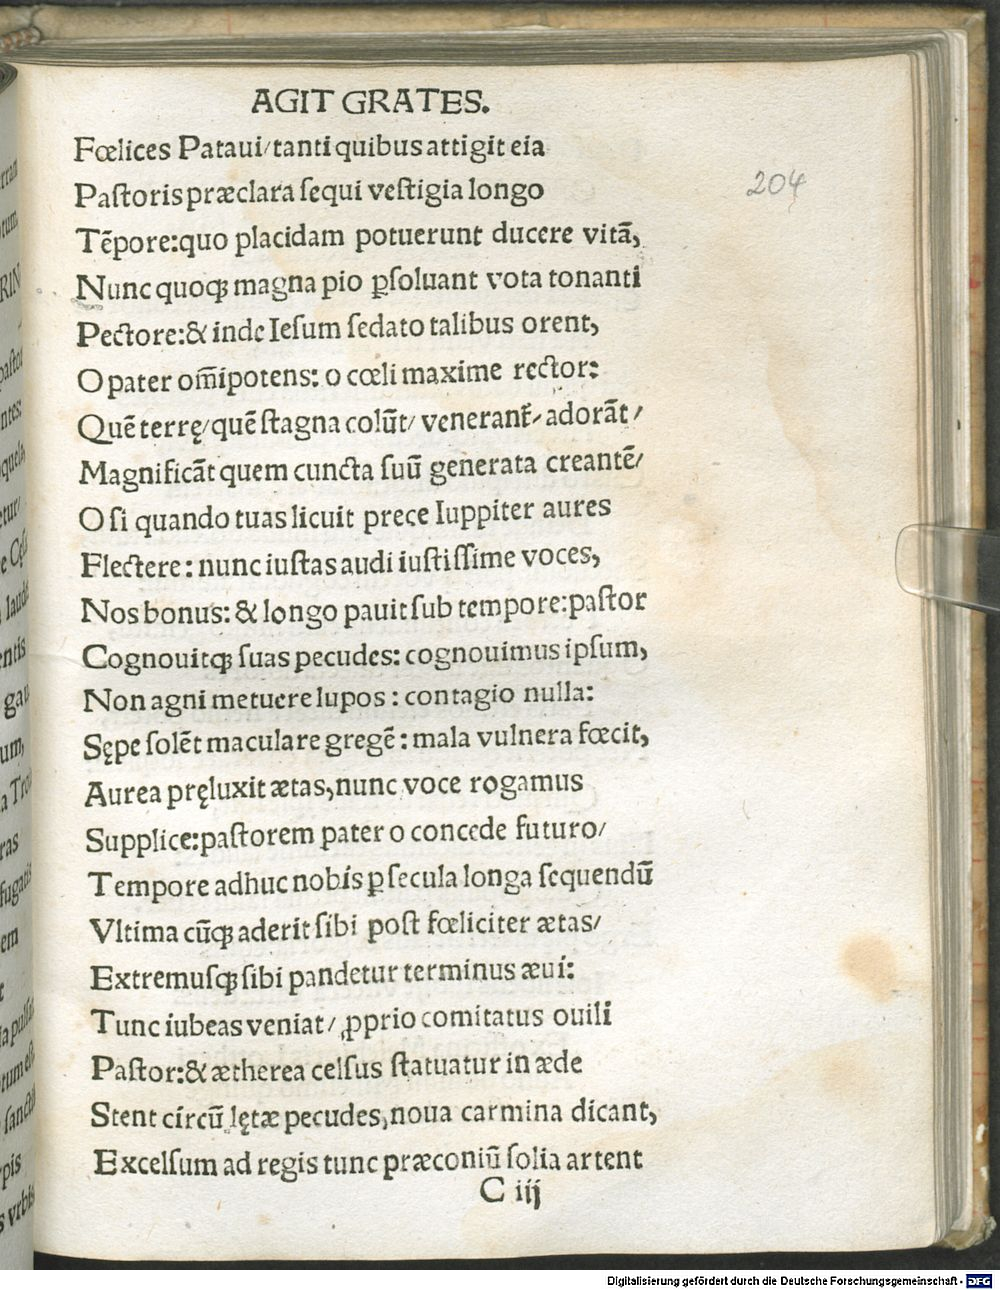 AGIT GRATES.
Fœlices Pataui/tanti quibus attigit eia
204
Paſtoris præclara ſequi veſtigia longo
Tēpore:quo placidam potuerunt ducere vitā,
Nunc quoqꝫ magna pio ꝑſoluant vota tonanti
Pectore:& inde Ieſum ſedato talibus orent,
O pater om̅ipotens: o cœli maxime rector:
Quē terrę/quē ſtagna colūt/ venerant᷑/ adorāt/
Magnificāt quem cuncta ſuū generata creantē/
O ſi quando tuas licuit prece Iuppiter aures
Flectere: nunc iuſtas audi iuſtiſſime voces,
Nos bonus: & longo pauit ſub tempore:paſtor
Cognouitqꝫ ſuas pecudes: cognouimus ipſum,
Non agni metuere lupos : contagio nulla:
Sępe ſolēt maculare gregē : mala vulnera fœcit,
Aurea pręluxit ætas,nunc voce rogamus
Supplice:paſtorem pater o concede futuro/
Tempore adhuc nobis ꝑ ſecula longa ſequendū
Vltima cūqꝫ aderit ſibi poſt fœliciter ætas/
Extremuſqꝫ ſibi pandetur terminus æui:
Tunc iubeas veniat/ ꝓprio comitatus ouili
Paſtor:& ætherea celſus ſtatuatur in æde
Stent circū lętæ pecudes,noua carmina dicant,
Excelſum ad regis tunc præconiū ſolia artent
C iij
Digitalisierung gefördert durch die Deutsche Forschungsgemeinschaft - DFG